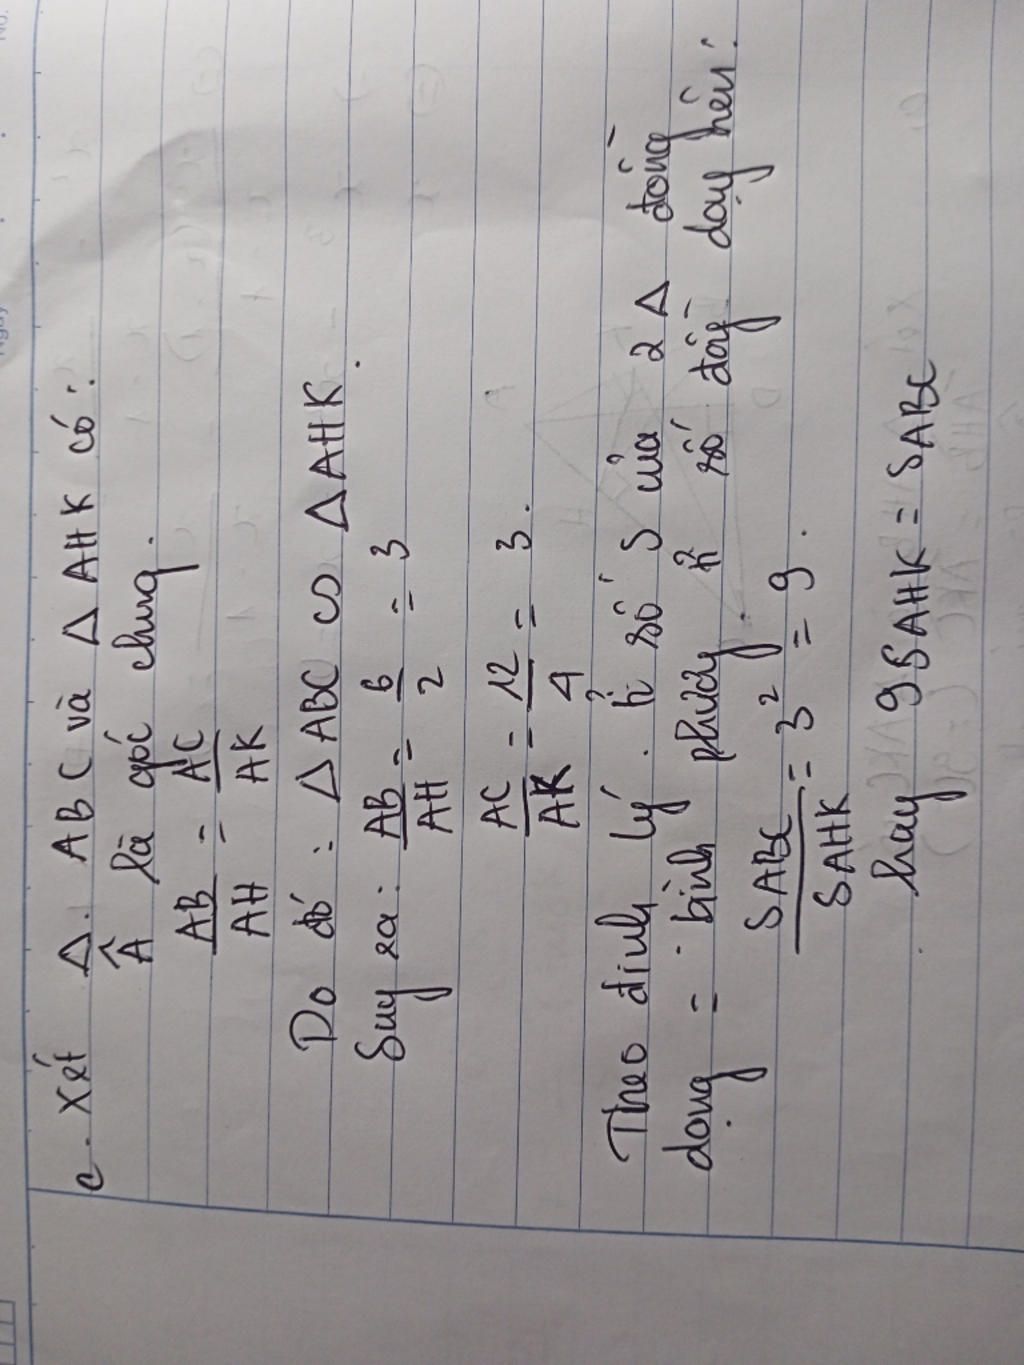 c. Xét Δ. ABC và Δ AHK có:
Â là góc chung.
AB/AH = AC/AK
Do đó: Δ ABC ∽ Δ AHK.
Suy ra: AB/AH = 6/2 = 3
AC/AK = 12/4 = 3.
Theo định lý. tỉ số S của 2 Δ đồng
dạng = bình phương tỉ số đồng dạng nên:
SABC/SAHK = 3² = 9.
hay 9SAHK = SABC